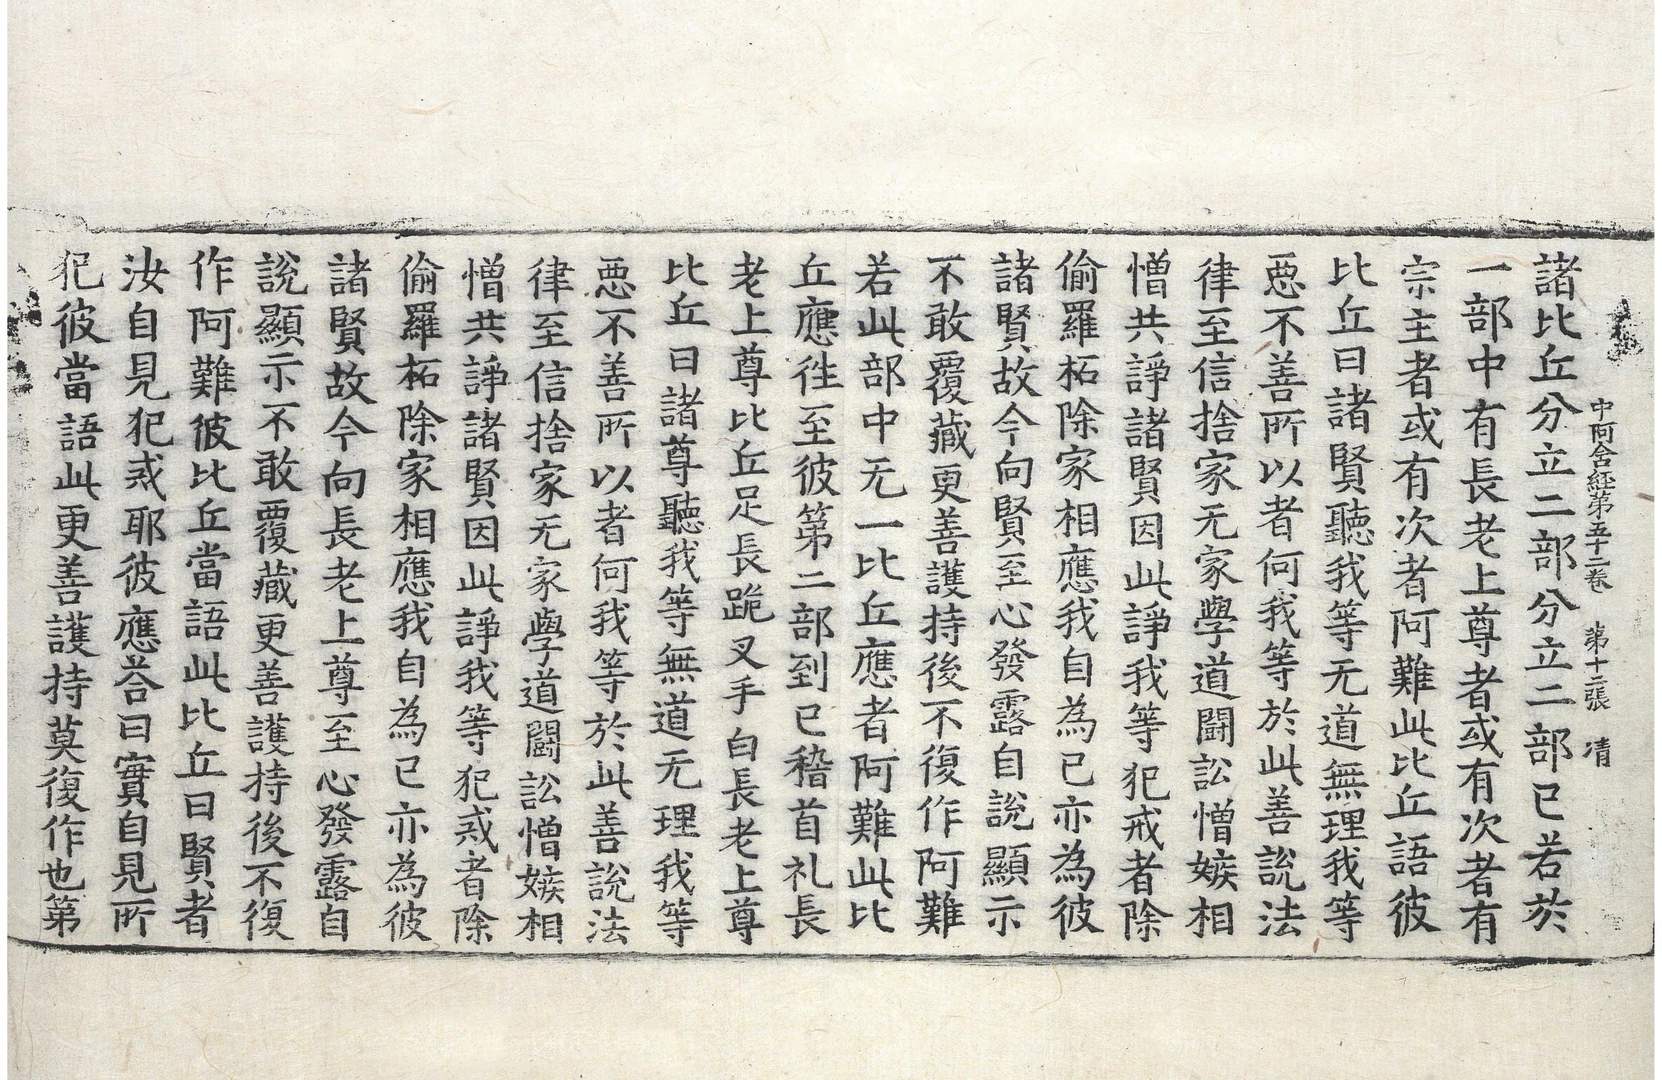 中阿含経第五十二卷 第十二張 凊
諸比丘分立二部分立二部已若於
一部中有長老上尊者或有次者有
宗主者或有次者阿難此比丘語彼
比丘曰諸賢聽我等无道無理我等
惡不善所以者何我等於此善說法
律至信捨家无家學道鬪訟憎嫉相
憎共諍諸賢因此諍我等犯戒者除
偷羅柘除家相應我自為已亦為彼
諸賢故今向賢至心發露自說顯示
不敢覆藏更善護持後不復作阿難
若此部中无一比丘應者阿難此比
丘應徃至彼第二部到已稽首礼長
老上尊比丘足長跪叉手白長老上尊
比丘曰諸尊聽我等無道无理我等
惡不善所以者何我等於此善說法
律至信捨家无家學道鬪訟憎嫉相
憎共諍諸賢因此諍我等犯戒者除
偷羅柘除家相應我自為已亦為彼
諸賢故今向長老上尊至心發露自
說顯示不敢覆藏更善護持後不復
作阿難彼比丘當語此比丘曰賢者
汝自見犯戒耶彼應荅曰實自見所
犯彼當語此更善護持莫復作也第